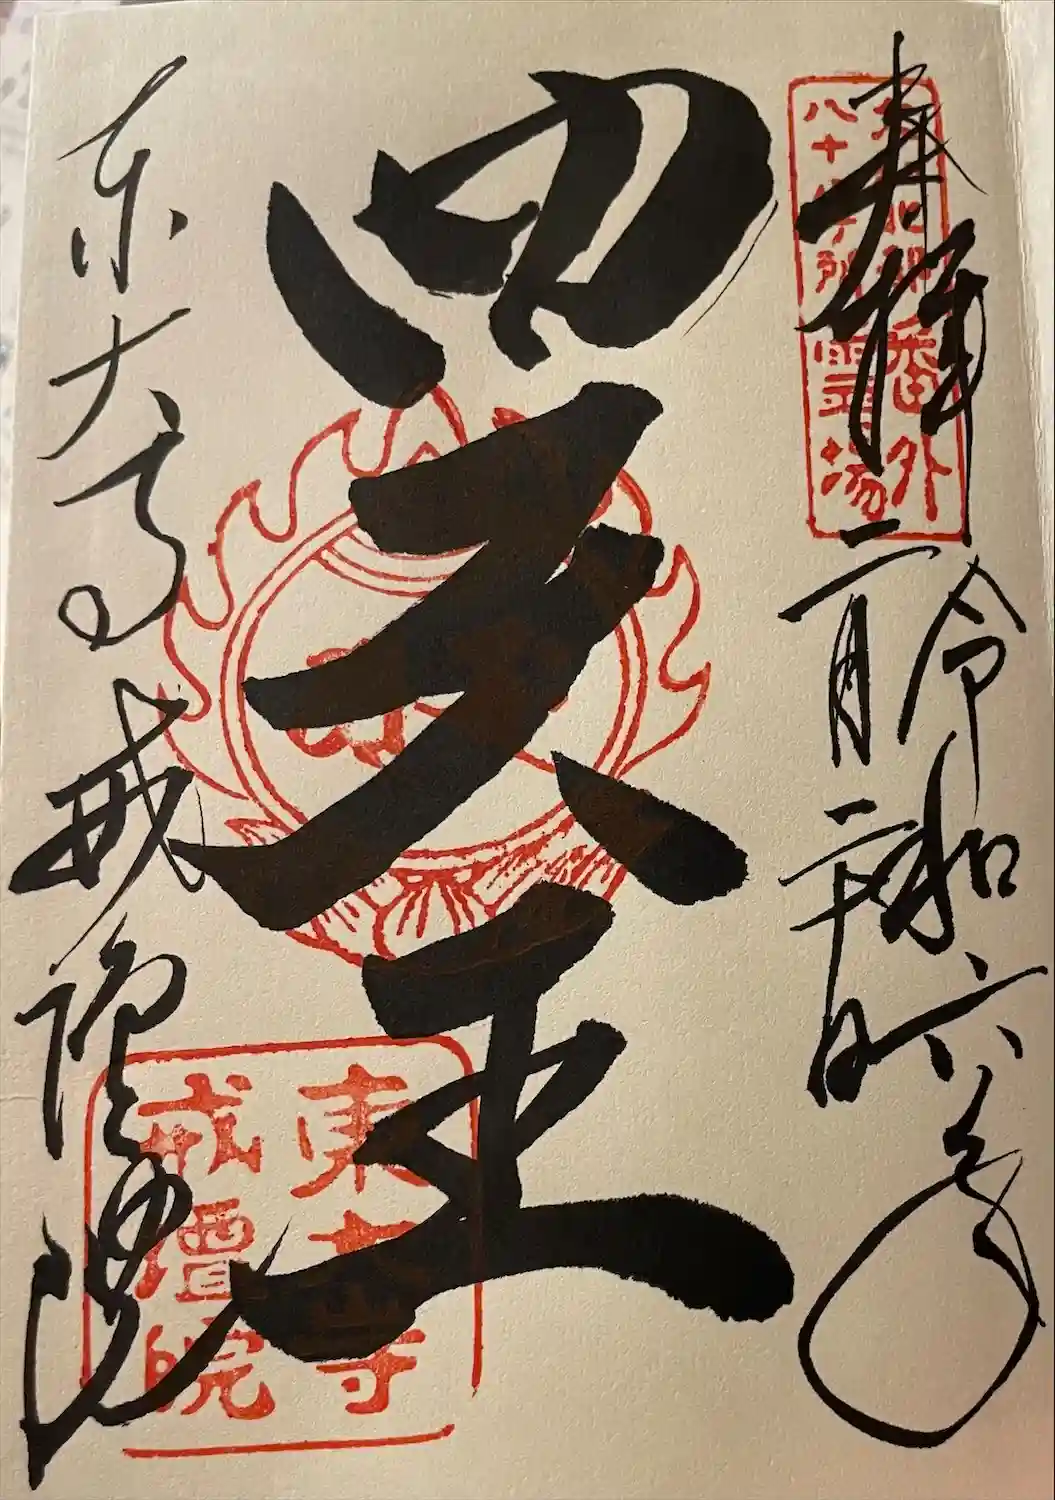 奉拝
大和北部番外
八十八ヶ所霊場
令和六年
二月二十日
四天王
東大寺
戒壇院
東大寺戒壇院